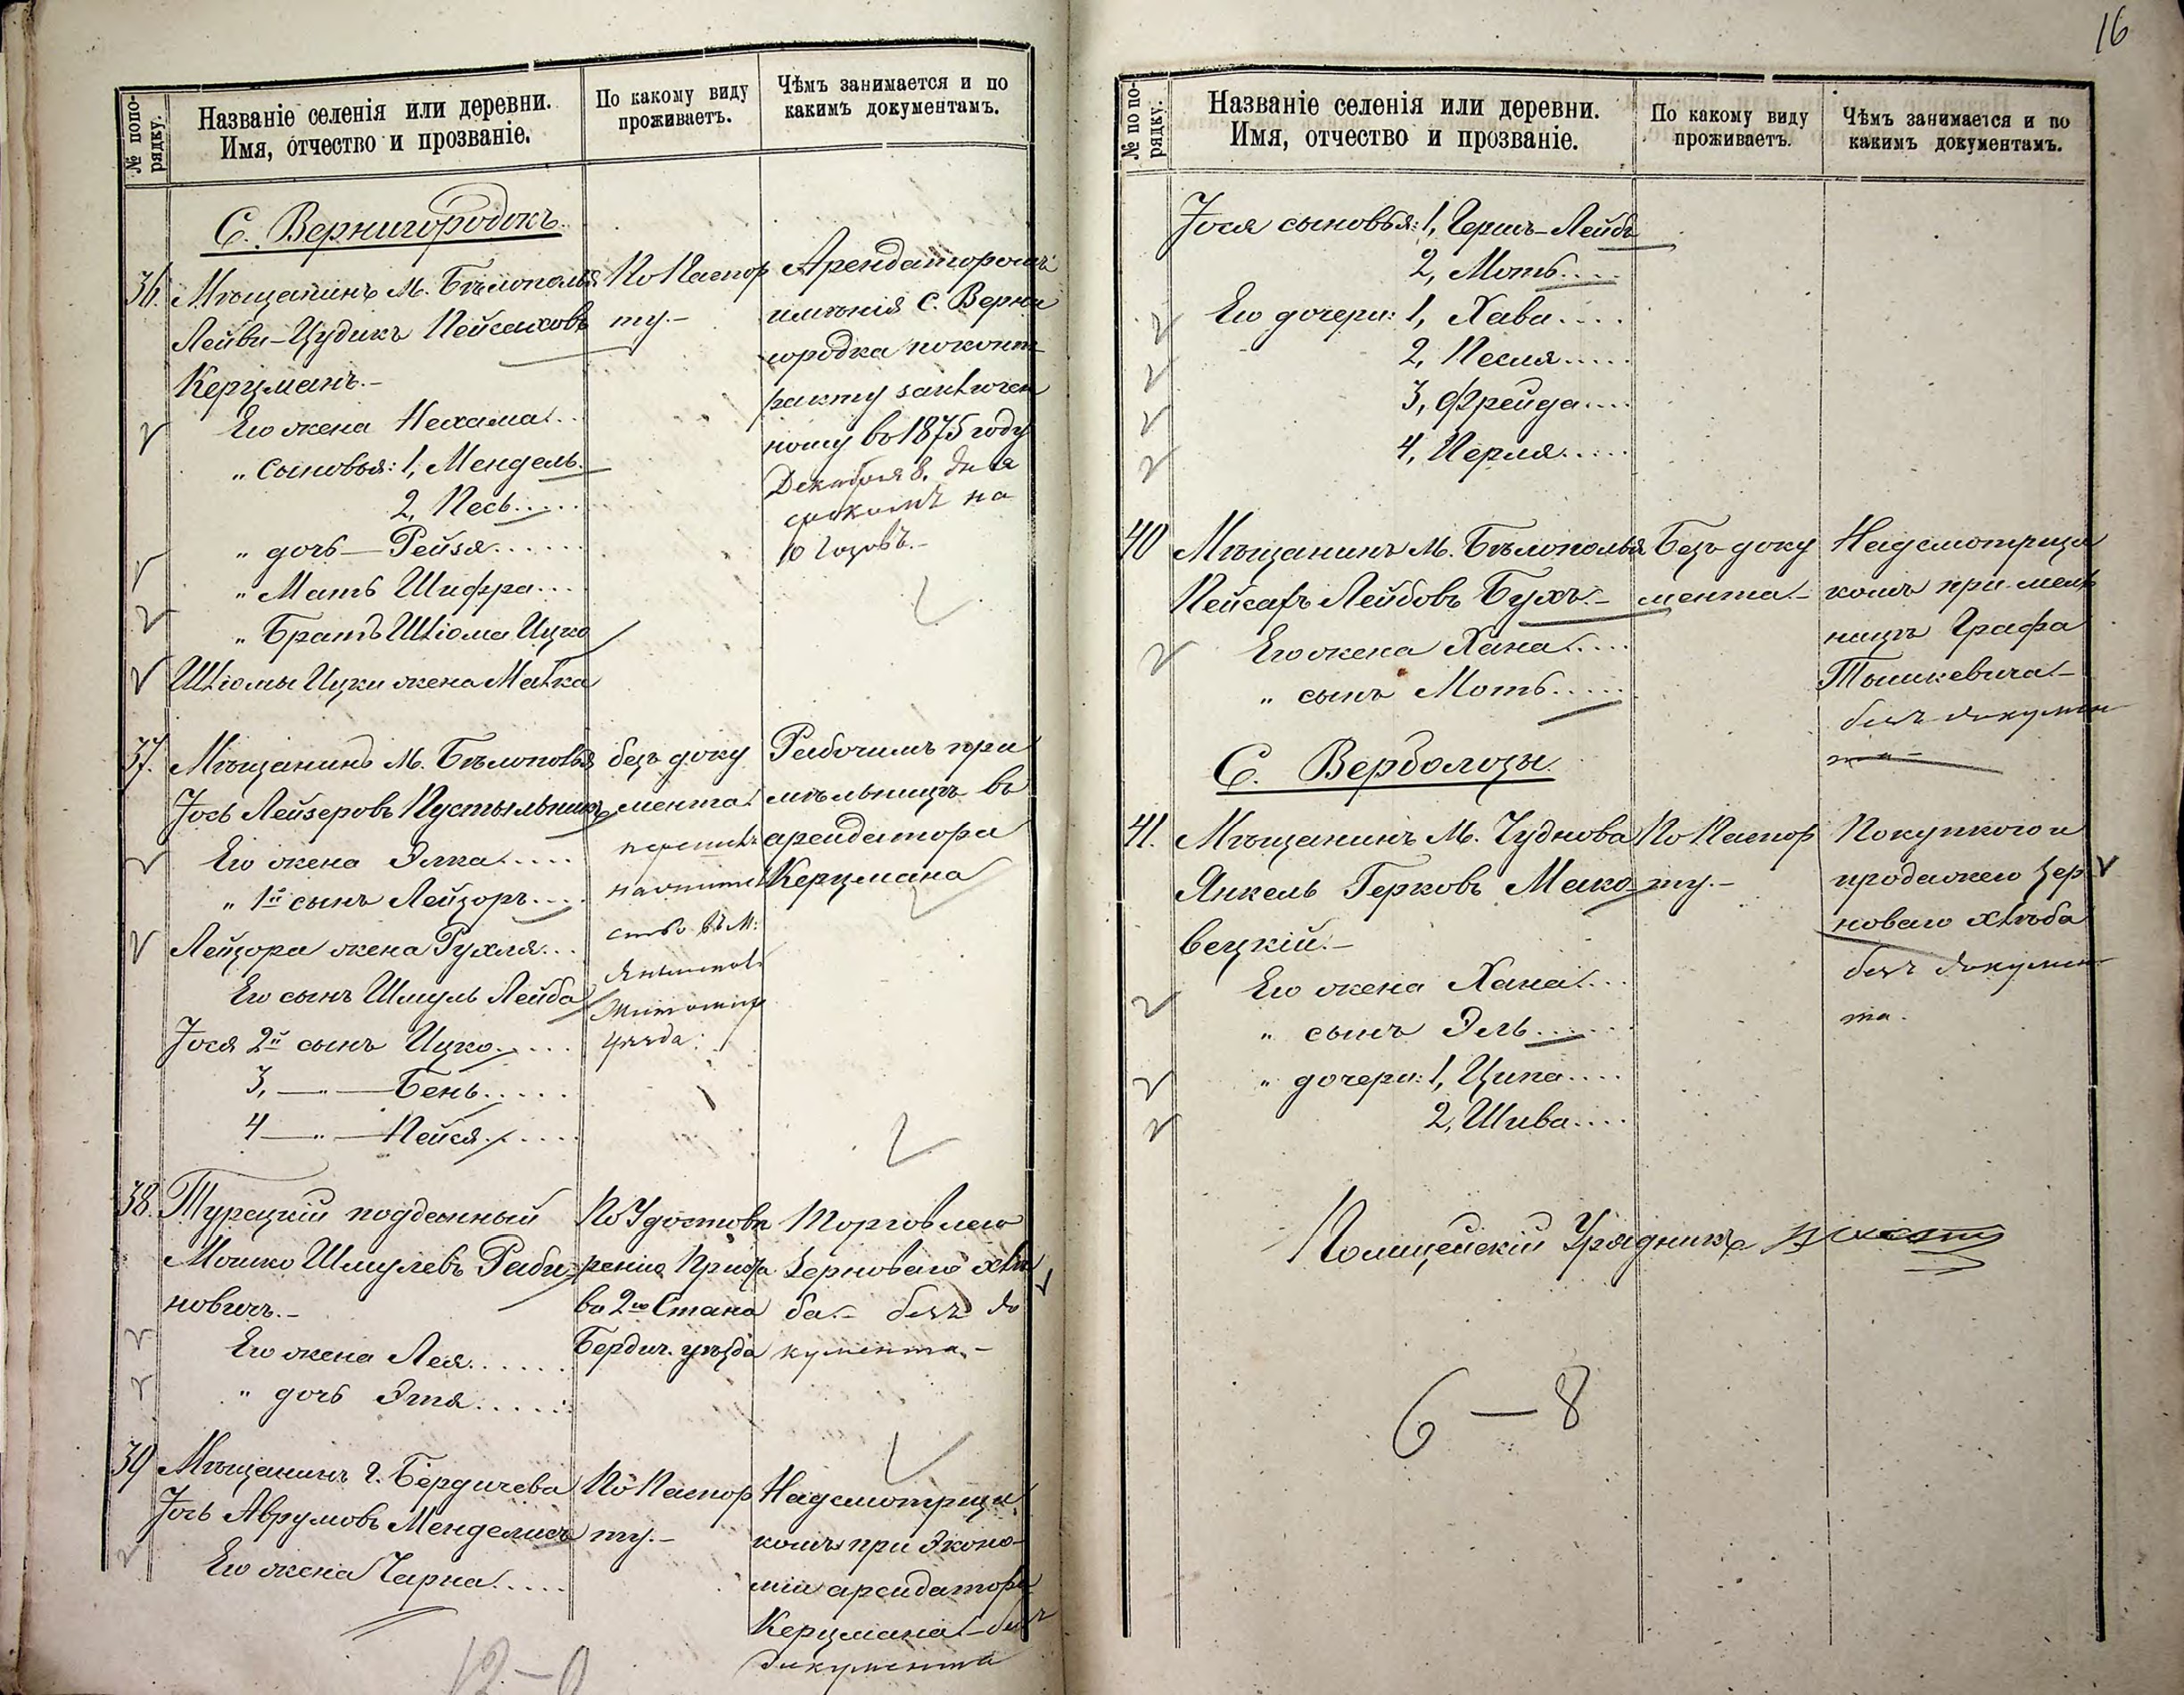 16
№ попо-
рядку.
Названіе селенія или деревни.
Имя, отчество и прозваніе.
По какому виду
проживаетъ.
Чѣмъ занимается и по
какимъ документамъ.
С. Вернигородокъ.
36. Мѣщанинъ М. Бѣлополья
Лейви-Цудикъ Пейсаховъ
Керцманъ.-
Его жена Нехама....
" Сыновья: 1, Мендель.
2, Песь.....
" дочь — Рейзя......
" Мать Шифра...
" Братъ Шліома Ицко
Шліомы Ицки жена Малка
По Паспор
ту.-
Арендаторомъ
имѣнія с. Верни
городка по конт
ракту заключен
ному въ 1875 году
Декабря 8. дня
срокомъ на
10 годовъ.-
37. Мѣщанинъ М. Бѣлополья
Іось Лейзеровъ Пустыльникъ
Его жена Элка.....
" 1й сынъ Лейзоръ....
Лейзора жена Рухля...
Его сынъ Шмуль Лейба
Іося 2й сынъ Ицко.....
3, —"— Бень.....
4 —"— Пейся......
безъ доку
мента.
ство въ М:
уѣзда.
Рабочимъ при
мѣльницѣ въ
арендатора
Керцмана
38. Турецкій подданный
Мошко Шмулевъ Раби-
новичъ.-
Его жена Лея......
" дочь Этя......
По Удостовѣ
ренію Приста
ва 2го Стана
Бердич. уѣзда
Торговлею
зерноваго хлѣ
ба.- безъ до
кумента.-
39 Мѣщанинъ г. Бердичева
Іось Аврумовъ Менделисъ
Его жена Чарна.....
По Паспор
ту.-
Надсмотрщи
комъ при Эконо-
міи арендатора
Керцмана - безъ
документа
№ по по-
рядку.
Названіе селенія или деревни.
Имя, отчество и прозваніе.
По какому виду
проживаетъ.
Чѣмъ занимается и по
какимъ документамъ.
Іося сыновья: 1, Гершъ-Лейбъ
2, Моть.....
Его дочери: 1, Хава....
2, Песля.....
3, Фрейда....
4, Перля.....
40 Мѣщанинъ М. Бѣлополья
Пейсахъ Лейбовъ Бухъ.-
Его жена Хана.....
" сынъ Моть......
Безъ доку
мента.-
Надсмотрщи
комъ при мель
ницѣ Графа
Тышкевича.-
безъ докумен
та-
С. Вербологы.
41. Мѣщанинъ М. Чуднова
Янкель Герковъ Мако-
вецкій.-
Его жена Хана....
" сынъ Эль......
" дочери: 1, Ципа....
2, Шива....
По Паспор
ту.-
Покупкою и
продажею зер
новаго хлѣба
безъ докумен
та.
Полицейскій Урядникъ
6 — 8